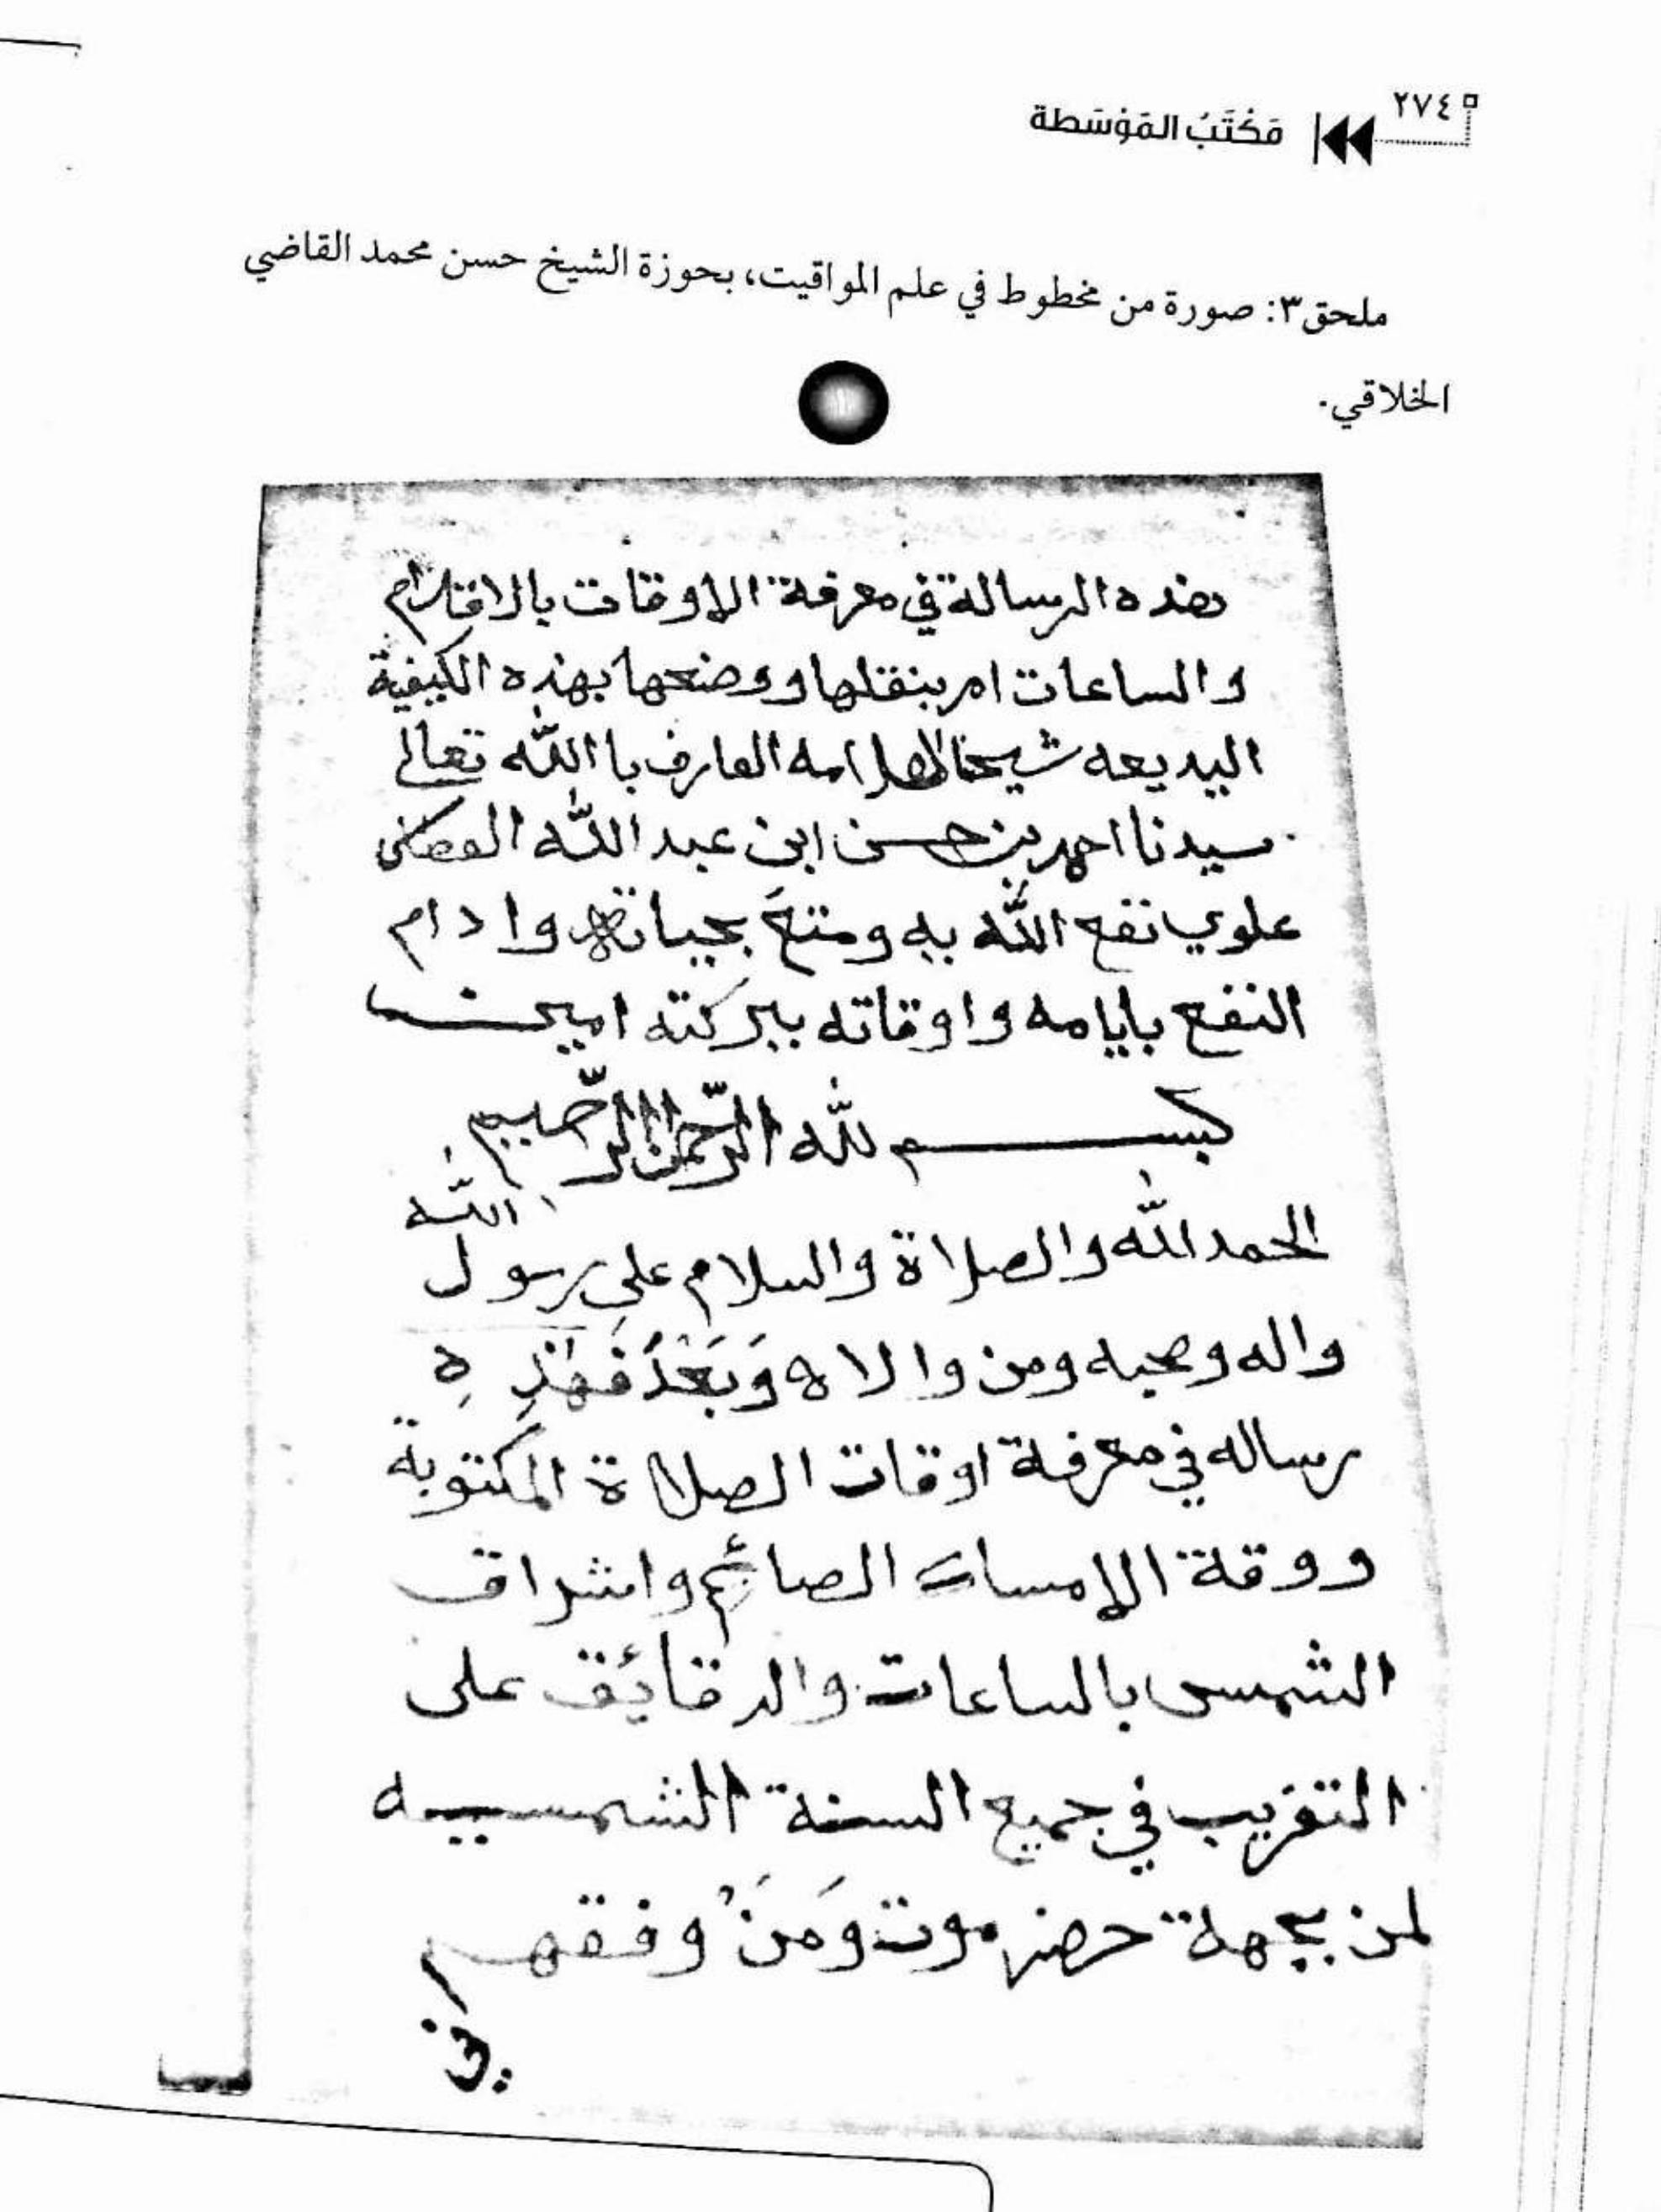 ٢٧٤
مَكْتَبُ المَوْسَطة
ملحق٣: صورة من مخطوط في علم المواقيت، بحوزة الشيخ حسن محمد القاضي
الخلاقي.
هذه الرسالة في معرفة الاوقات بالاقدام
والساعات امر بنقلها ووضعها بهذه الكيفية
البديعه شيخنا العلامه العارف باالله تعالى
سيدنا احمد بن حسن ابن عبد الله
علوي نفع الله به ومتع بحياته وادام
النفع بايامه واوقاته ببركته امين
بسم لله الرّحمن الرّحيم
الحمد الله والصلاة والسلام على رسول الله
واله وصحبه ومن والاه وَبَعْدُ فَهَذِهِ
رساله في معرفة اوقات الصلاة المكتوبة
ووقة الامساك الصائم واشراق
الشمس بالساعات والدقائق على
التقريب في جميع السنة الشمسيه
لمن بجهة حضرموت وَمَنْ وفقهم
في